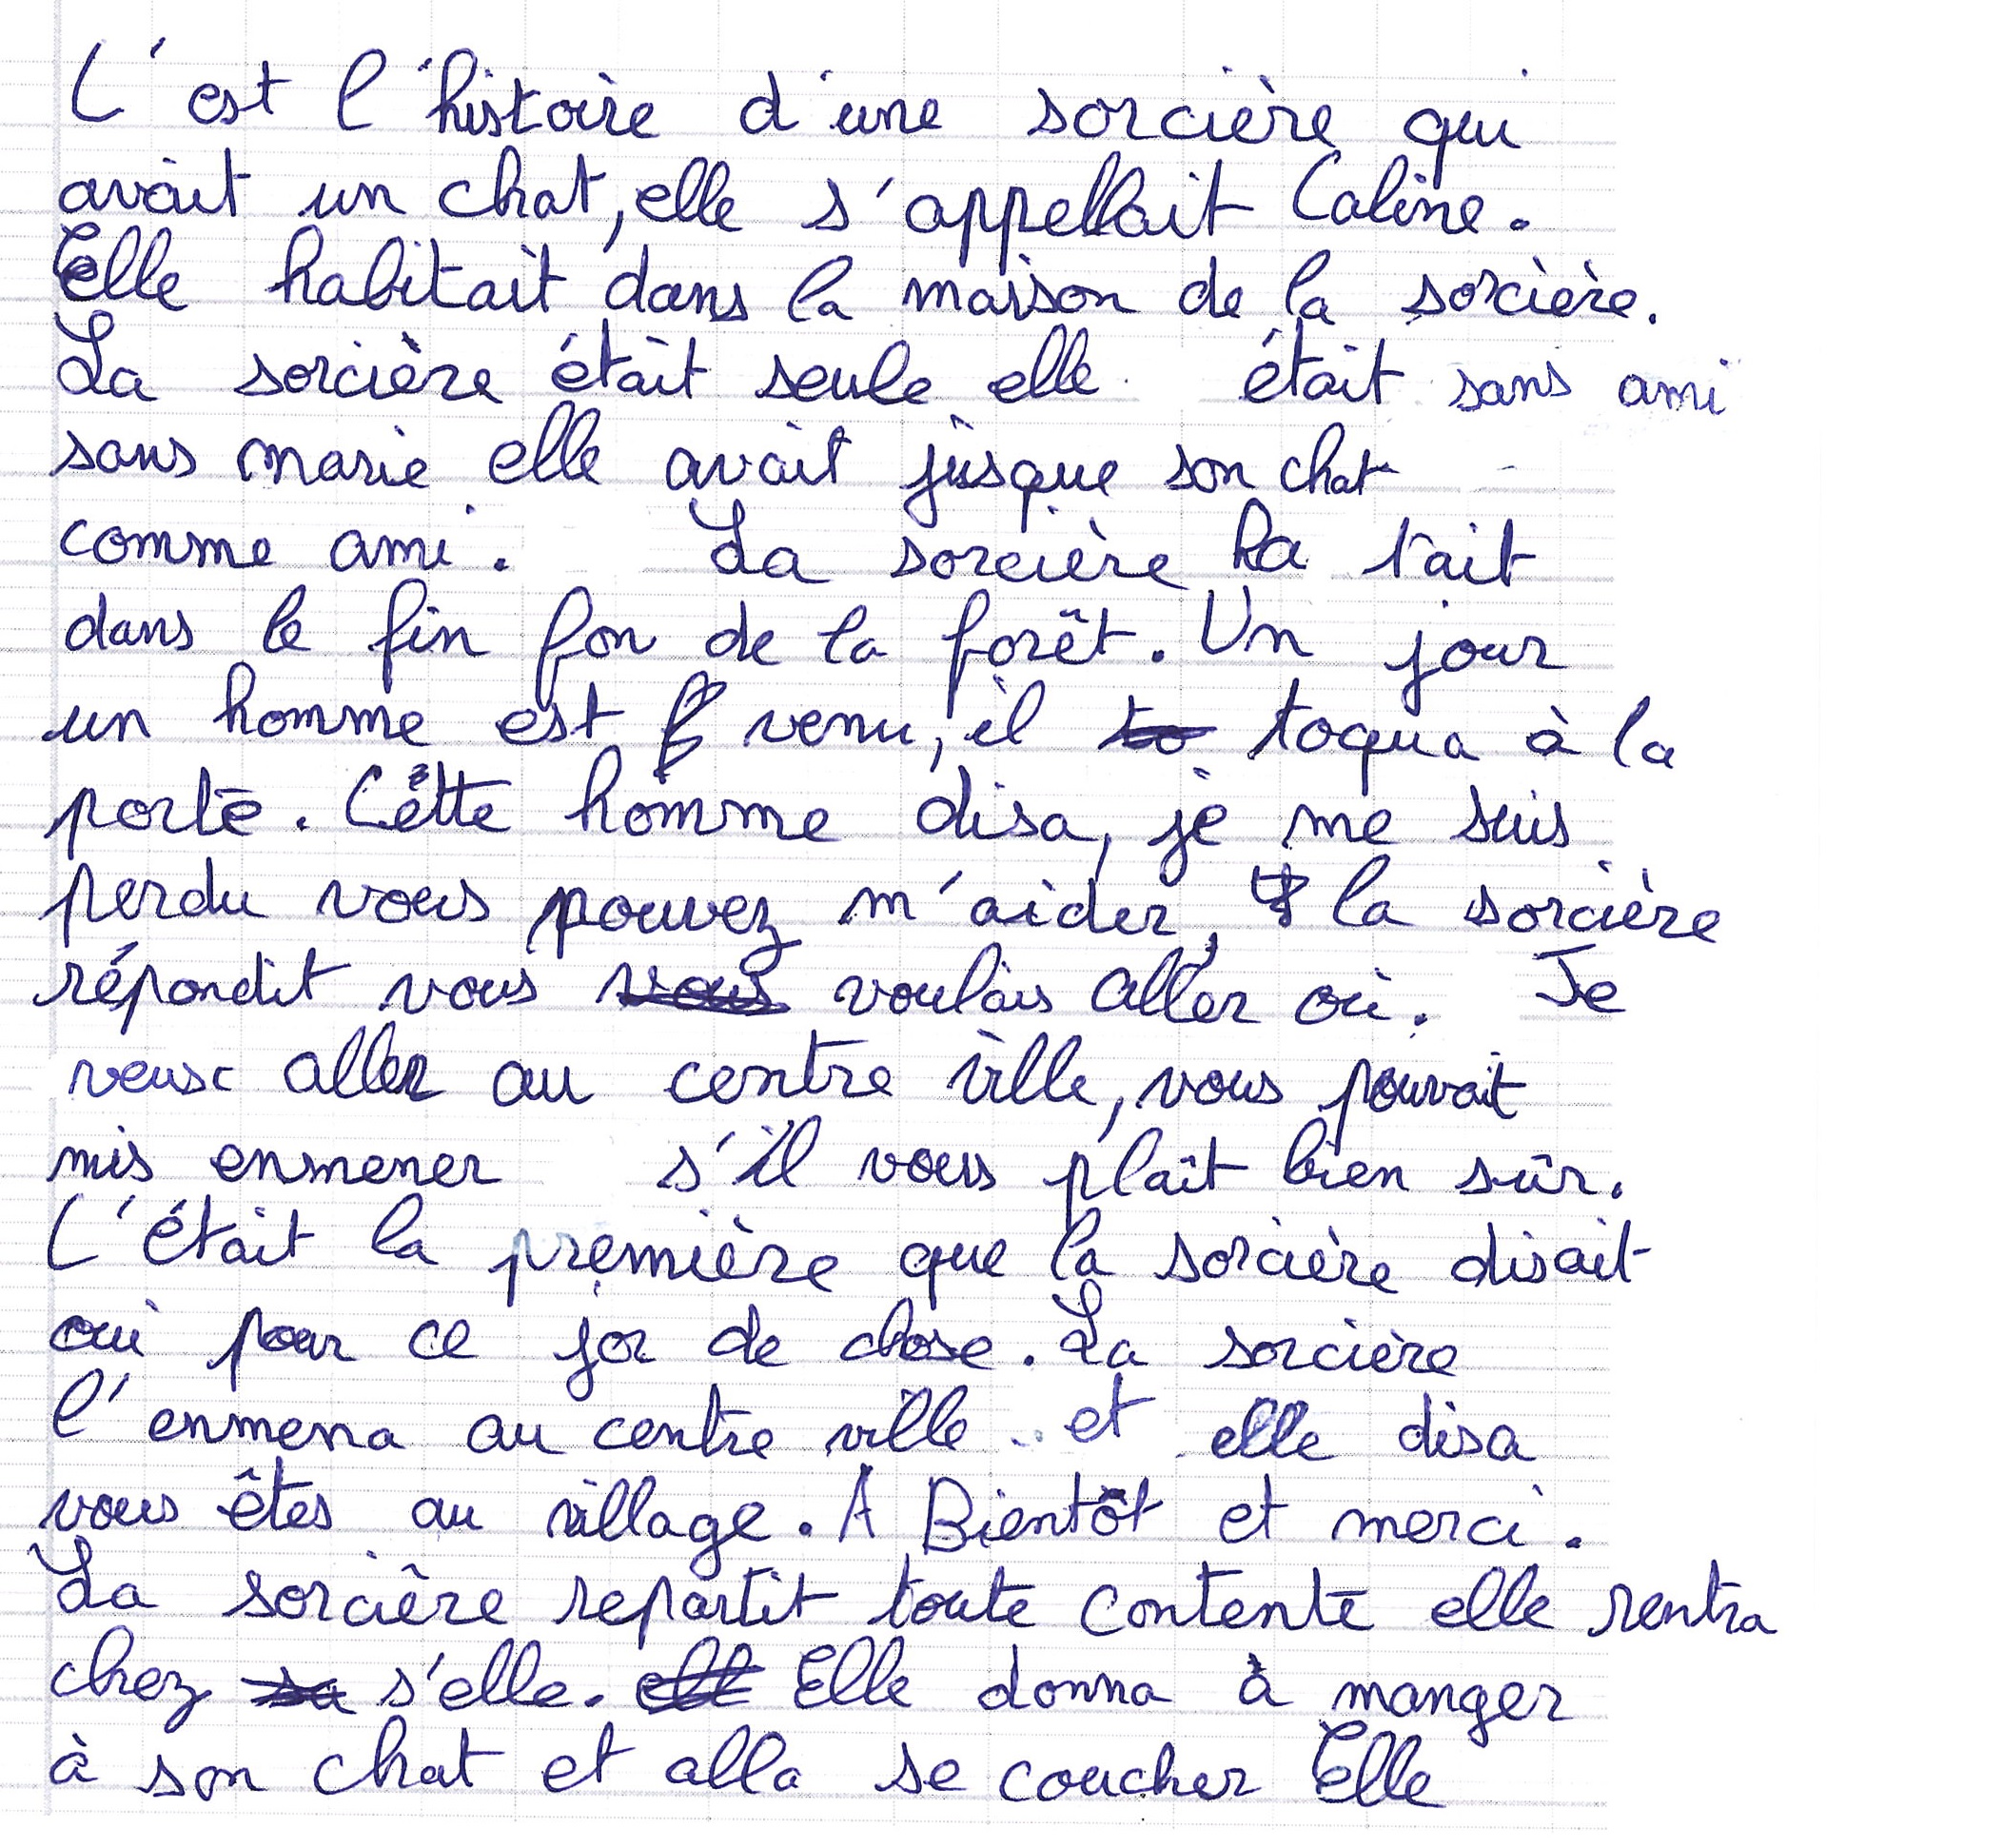 C'est l'histoire d'une sorcière qui
avait un chat, elle s'appellait Caline.
Elle habitait dans la maison de la sorcière.
La sorcière était seule elle était sans ami
sans marie elle avait jusque son chat
comme ami. La sorcière ha tait
dans le fin fon de la forêt. Un jour
un homme est venu, il to toqua à la
porte. Cette homme disa, je me suis
perdu vous pouvez m'aider, la sorcière
répondit vous vous voulais aller où. Je
veux aller au centre ville, vous pouvait
mis enmener s'il vous plaît bien sûr.
C'était la première que la sorcière disait
oui pour ce jor de chose. La sorcière
l'enmena au centre ville et elle disa
vous êtes au village. A Bientôt et merci.
La sorcière repartit toute contente elle rentra
chez sa s'elle. elle Elle donna à manger
à son chat et alla se coucher Elle